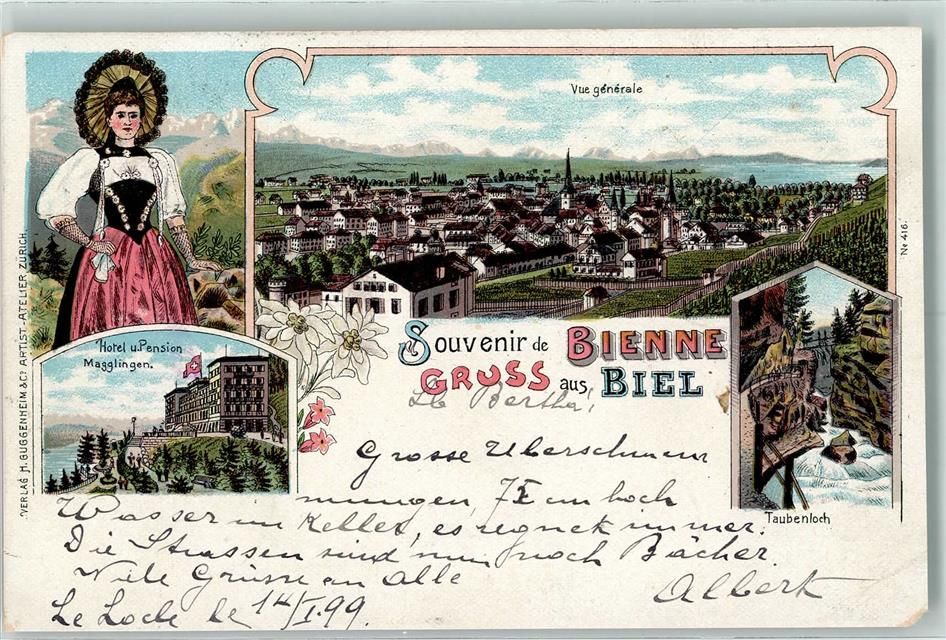 Vue générale
VERLAG H. GUGGENHEIM & Cº ARTIST.-ATELIER ZÜRICH.
Nº 416.
Hotel u. Pension
Magglingen.
Souvenir de BIENNE
GRUSS aus BIEL
Taubenloch
Lb Bertha!
Grosse Überschwem
mungen, 75 cm hoch
Wasser im Keller, es regnet immer.
Die Strassen sind nur noch Bächer.
Viele Grüsse an alle
Albert
Le Locle le 14/I.99.